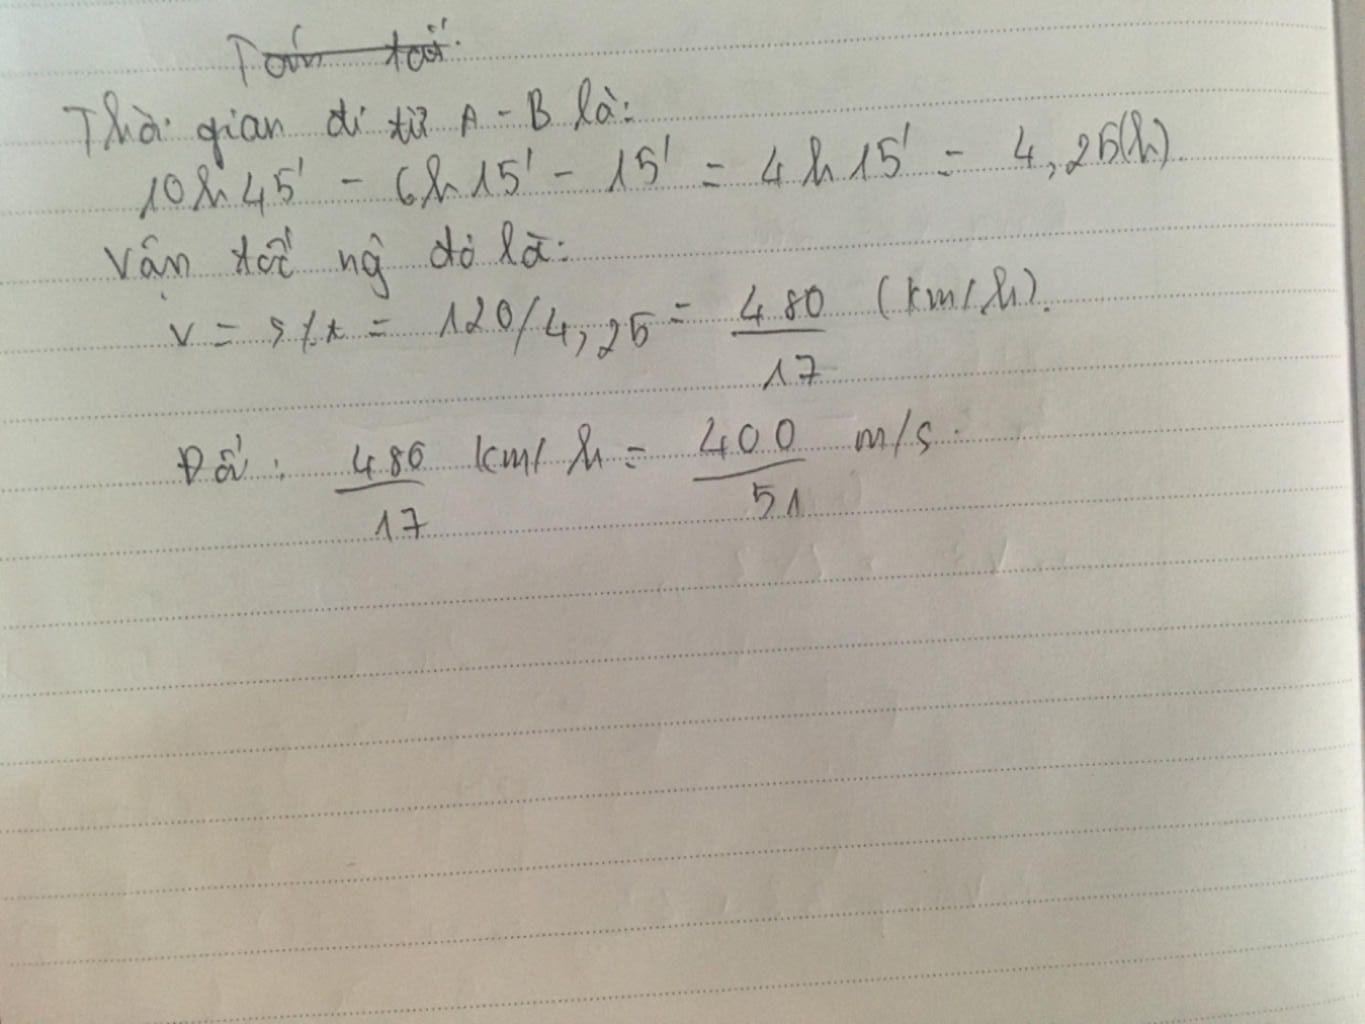 Tóm tắt:
Thời gian đi từ A - B là:
10h45' - 6h15' - 15' = 4h15' = 4,25(h).
Vận tốc ng đó là:
v = s/t = 120/4,25 = 480/17 (km/h).
Đổi: 480/17 km/h = 400/51 m/s.